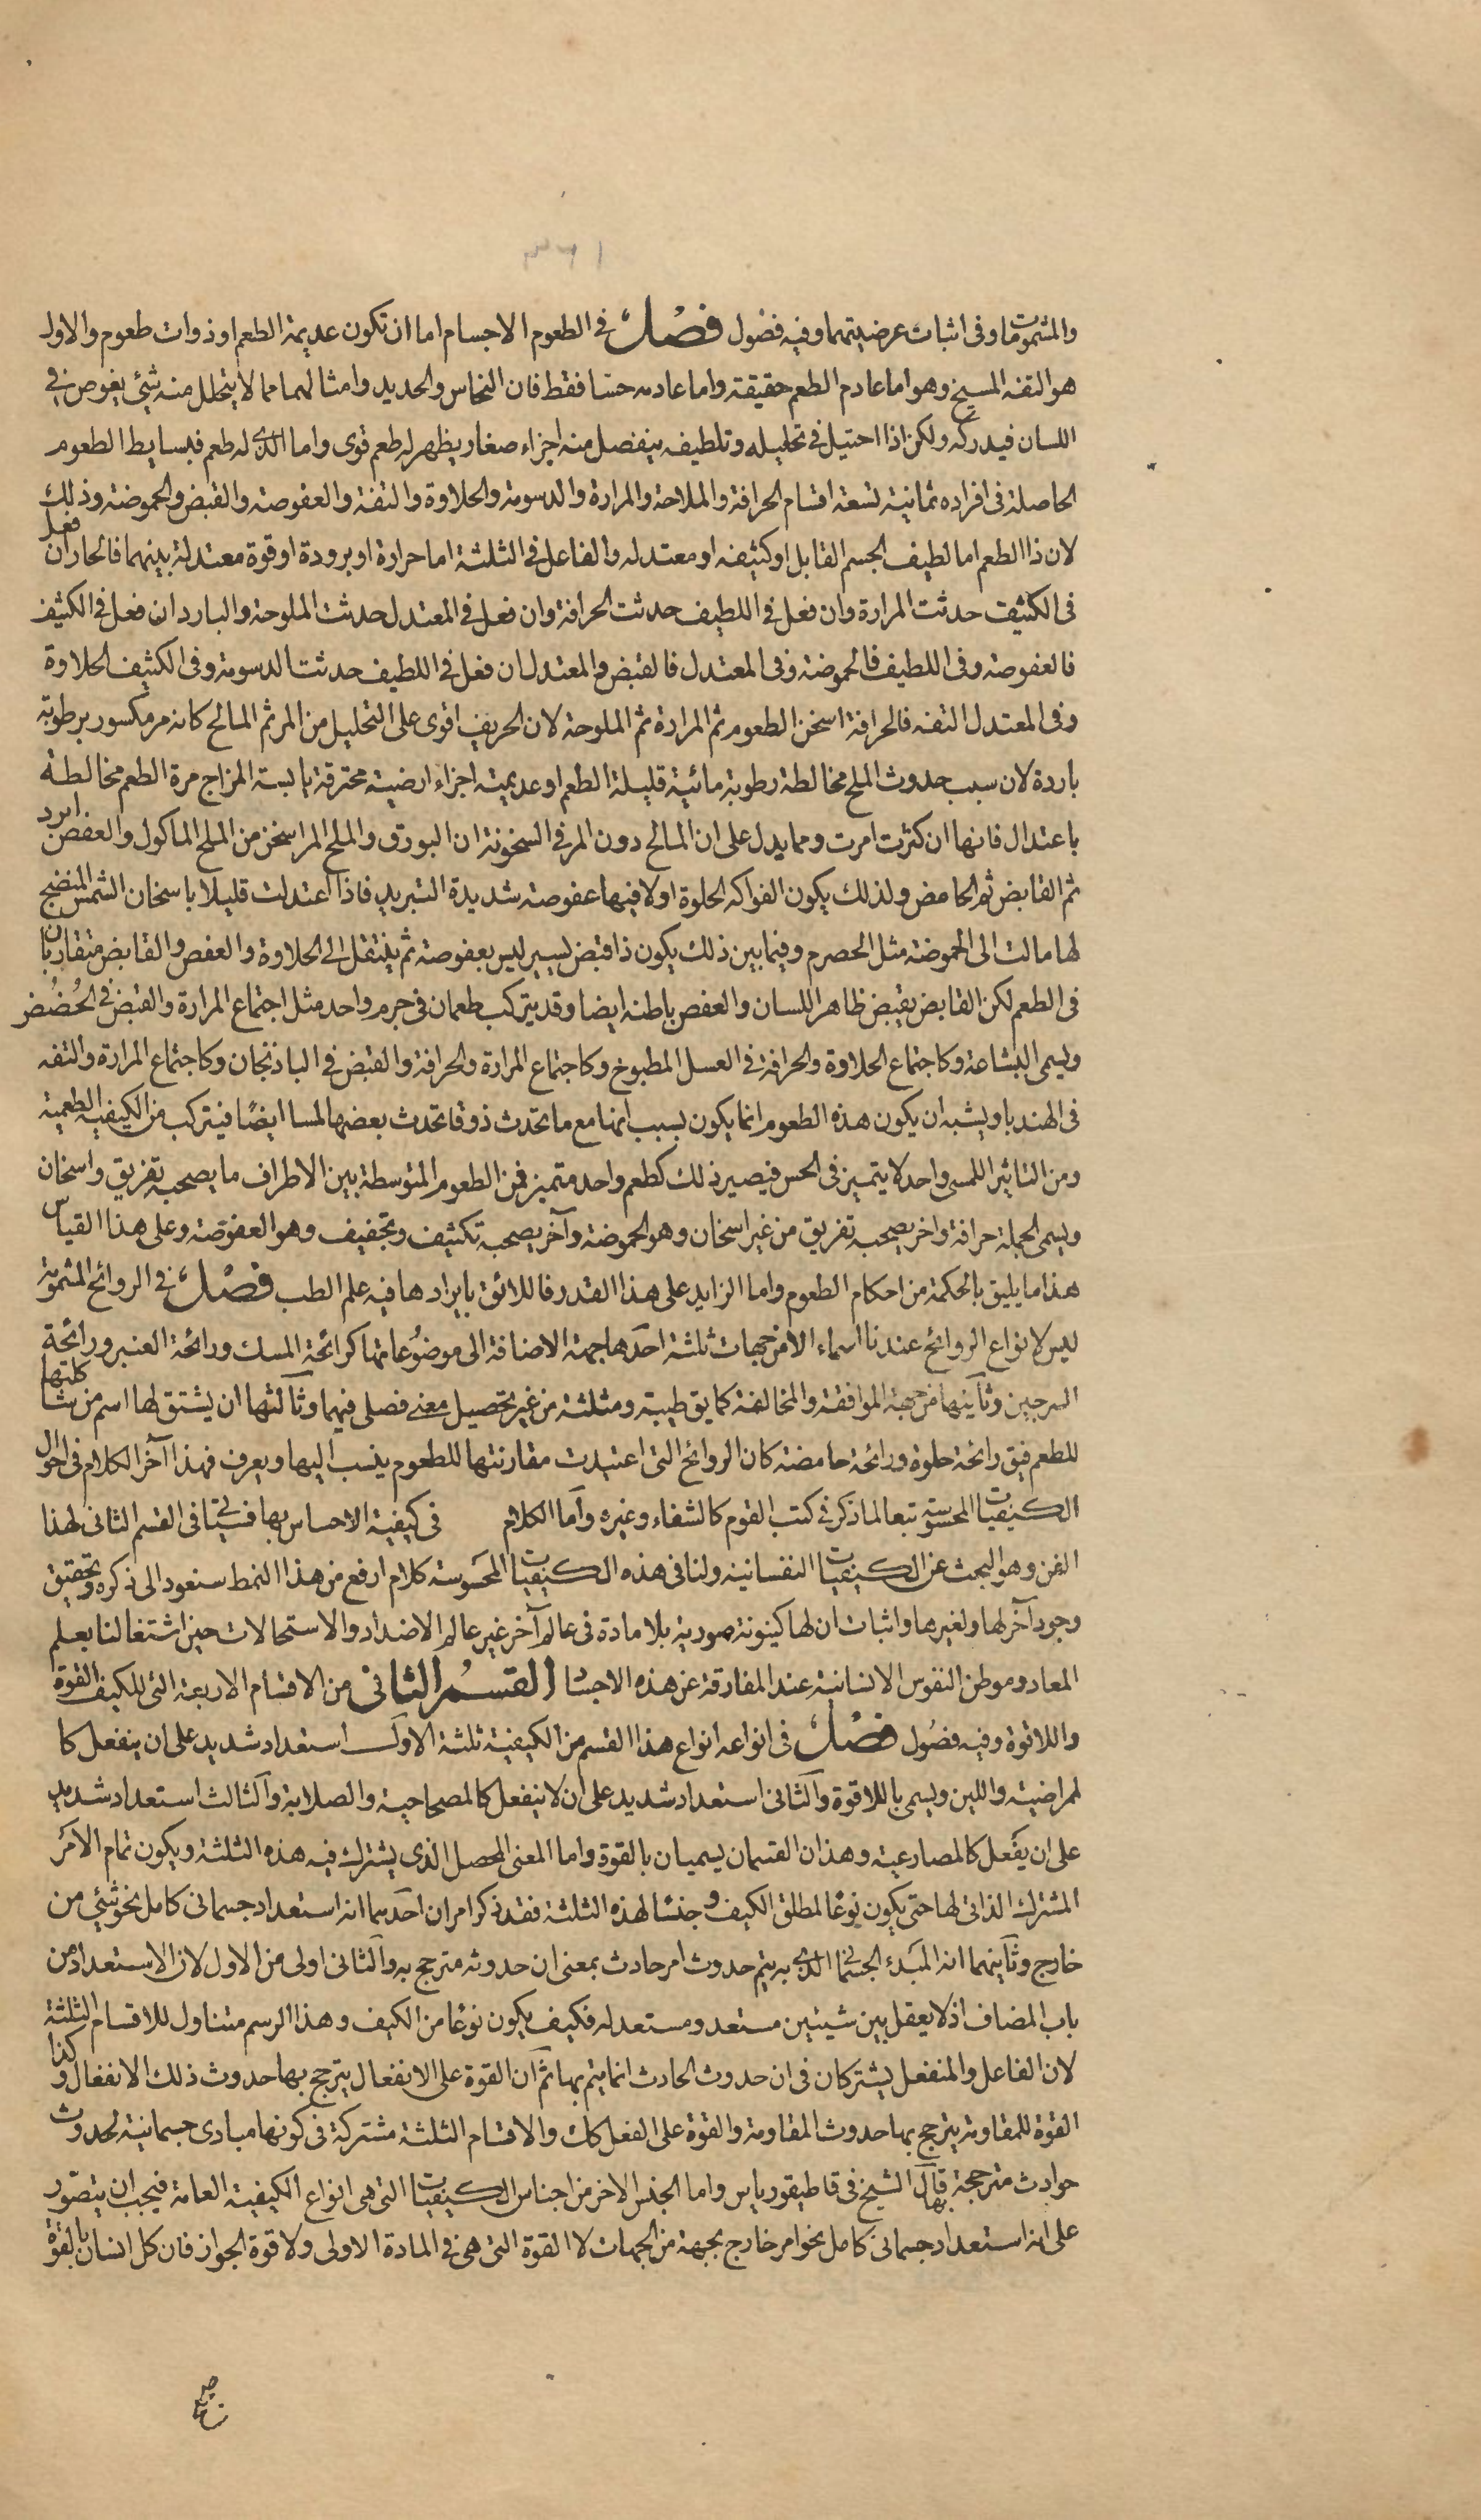 ٣٦١
والمشمومات وفى اثبات عرضيتهما وفيه فصول فصل فى الطعوم الاجسام اما ان تكون عديمة الطعم او ذوات طعوم والاول
هو التفه المسيخ وهو اما عادم الطعم حقيقة واما عادمه حسّا فقط فان النحاس والحديد وامثالهما مما لا يتحلل منه شئ يغوص فى
اللسان فيدركه ولكن اذا احتيل فى تحليله وتلطيف ينفصل منه اجزاء صغار يظهر له طعم قوى واما الذى له طعم فبسايط الطعوم
الحاصلة فى افراده ثمانية تسعة اقسام الحرافة والملاحة والمرارة والدسومة والحلاوة والتفة والعفوصة والقبض والحموضة وذلك
لان ذا الطعم اما لطيف الجسم القابل او كثيفه او معتدله والفاعل فى الثلثة اما حرارة او برودة او قوة معتدلة بينهما فالحار ان فعل
فى الكثيف حدثت المرارة وان فعل فى اللطيف حدثت الحرافة وان فعل فى المعتدل حدثت الملوحة والبارد ان فعل فى الكثيف
فالعفوصة وفى اللطيف فالحموضة وفى المعتدل فالقبض والمعتدل ان فعل فى اللطيف حدثت الدسومة وفى الكثيف الحلاوة
وفى المعتدل التفه فالحرافة اسخن الطعوم ثم المرارة ثم الملوحة لان الحريف اقوى على التحليل من المر ثم المالح كانه مر مكسور برطوبة
باردة لان سبب حدوث الملح مخالطة رطوبة مائية قليلة الطعم او عديمته اجزاء ارضية محترقة يابسة المزاج مرة الطعم مخالطة
باعتدال فانها ان كثرت امرت ومما يدل على ان المالح دون المر فى السخونة ان البورق والملح المر اسخن من الملح الماكول والعفص ابرد
ثم القابض ثم الحامض ولذلك يكون الفواكه الحلوة اولا فيها عفوصة شديدة التبريد فاذا اعتدلت قليلا باسخان الشمس المنضج
لها مالت الى الحموضة مثل الحصرم وفيما بين ذلك يكون ذا قبض يسير ليس بعفوصة ثم ينتقل الى الحلاوة والعفص والقابض متقاربان
فى الطعم لكن القابض يقبض ظاهر اللسان والعفص باطنه ايضا وقد يتركب طعمان فى جرم واحد مثل اجتماع المرارة والقبض فى الحُضُض
ويسمى البشاعة وكاجتماع الحلاوة والحرافة فى العسل المطبوخ وكاجتماع المرارة والحرافة والقبض فى الباذنجان وكاجتماع المرارة والتفه
فى الهندبا ويشبه ان يكون هذه الطعوم انما يكون بسبب انها مع ما تحدث ذوقا تحدث بعضها لمسا ايضًا فيتركب من الكيفية الطعمية
ومن التاثير اللمسى واحد لا يتميز فى الحس فيصير ذلك كطعم واحد متميز فمن الطعوم المتوسطة بين الاطراف ما يصحبه تفريق واسخان
ويسمى الجملة حرافة واخر يصحبه تفريق من غير اسخان وهو الحموضة وآخر يصحبه تكثيف وتجفيف وهو العفوصة وعلى هذا القياس
هذا ما يليق بالحكمة من احكام الطعوم واما الزايد على هذا القدر فاللائق بايرادها فيه علم الطب فصل فى الروائح المشمومة
ليس لانواع الروائح عندنا اسماء الا من جهات ثلثة احدها جهة الاضافة الى موضوعاتها كرائحة المسك ورائحة العنبر ورائحة
السرجين وثانيها من جهة الموافقة والمخالفة كما يق طيبة ومنتنة من غير تحصيل معنى فصلى فيهما وثالثها ان يشتق لها اسم من مشاكلتها
للطعم فيق رائحة حلوة ورائحة حامضة كان الروائح التى اعتيدت مقارنتها للطعوم ينسب اليها ويعرف فهذا آخر الكلام فى احوال
الكيفيات المحسوسة تبعا لما ذكر فى كتب القوم كالشفاء وغيره وامّا الكلام فى كيفية الاحساس بها فسياتى فى القسم الثانى لهذا
الفن وهو البحث عن الكيفيات النفسانية ولنا فى هذه الكيفيات المحسوسة كلام ارفع من هذا النمط سنعود الى ذكره وتحقيق
وجود آخر لها ولغيرها واثبات ان لها كينونة صورية بلا مادة فى عالم آخر غير عالم الاضداد والاستحالات حين اشتغالنا بعلم
المعاد وموطن النفوس الانسانية عند المفارقة عن هذه الاجساد القسم الثانى من الاقسام الاربعة التى للكيف القوة
واللاقوة وفيه فصُول فصل فى انواعه انواع هذا القسم من الكيفية ثلثة الاول استعداد شديد على ان ينفعل كا
لمراضية واللين ويسمى باللاقوة والثانى استعداد شديد على ان لا ينفعل كالمصحاحية والصلابة والثالث استعداد شديد
على ان يفعل كالمصارعية وهذان القسمان يسميان بالقوة واما المعنى المحصل الذى يشترك فيه هذه الثلثة ويكون تمام الامر
المشترك الذاتى لها حتى يكون نوعًا لمطلق الكيف وجنسًا لهذه الثلثة فقد ذكر امران احدهما انه استعداد جسمانى كامل نحو شئ من
خارج وثانيهما انه المبدء الجسمانى الذى به يتم حدوث امر حادث بمعنى ان حدوثه مترجح به والثانى اولى من الاول لان الاستعداد من
باب المضاف اذ لا يعقل بين شيئين مستعد ومستعد له فكيف يكون نوعًا من الكيف وهذا الرسم متناول للاقسام الثلثة
لان الفاعل والمنفعل يشتركان فى ان حدوث الحادث انما يتم بهما ثم ان القوة على الانفعال يترجح بها حدوث ذلك الانفعال وكذا
القوة للمقاومة يترجح بها حدوث المقاومة والقوة على الفعل كك والاقسام الثلثة مشتركة فى كونها مبادى جسمانية لحدوث
حوادث مترجحة بها قال الشيخ فى قاطيقورياس واما الجنس الاخر من اجناس الكيفيات التى هى انواع الكيفية العامة فيجب ان يتصوّر
على انه استعداد جسمانى كامل نحو امر خارج بجهة من الجهات لا القوة التى هى فى المادة الاولى ولا قوة الجواز فان كل انسان بالقوة